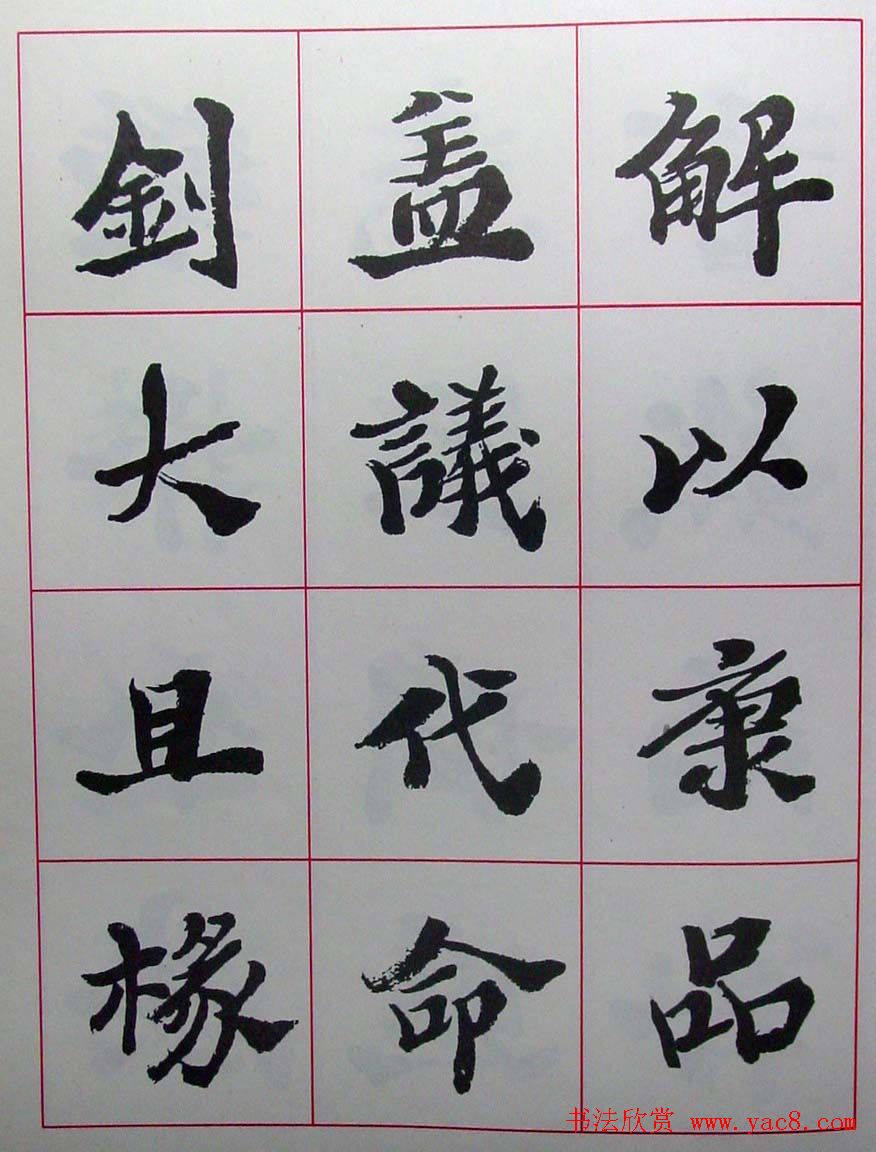 解以康品
盖議代命
釗大且椽
书法欣赏 www.yac8.com